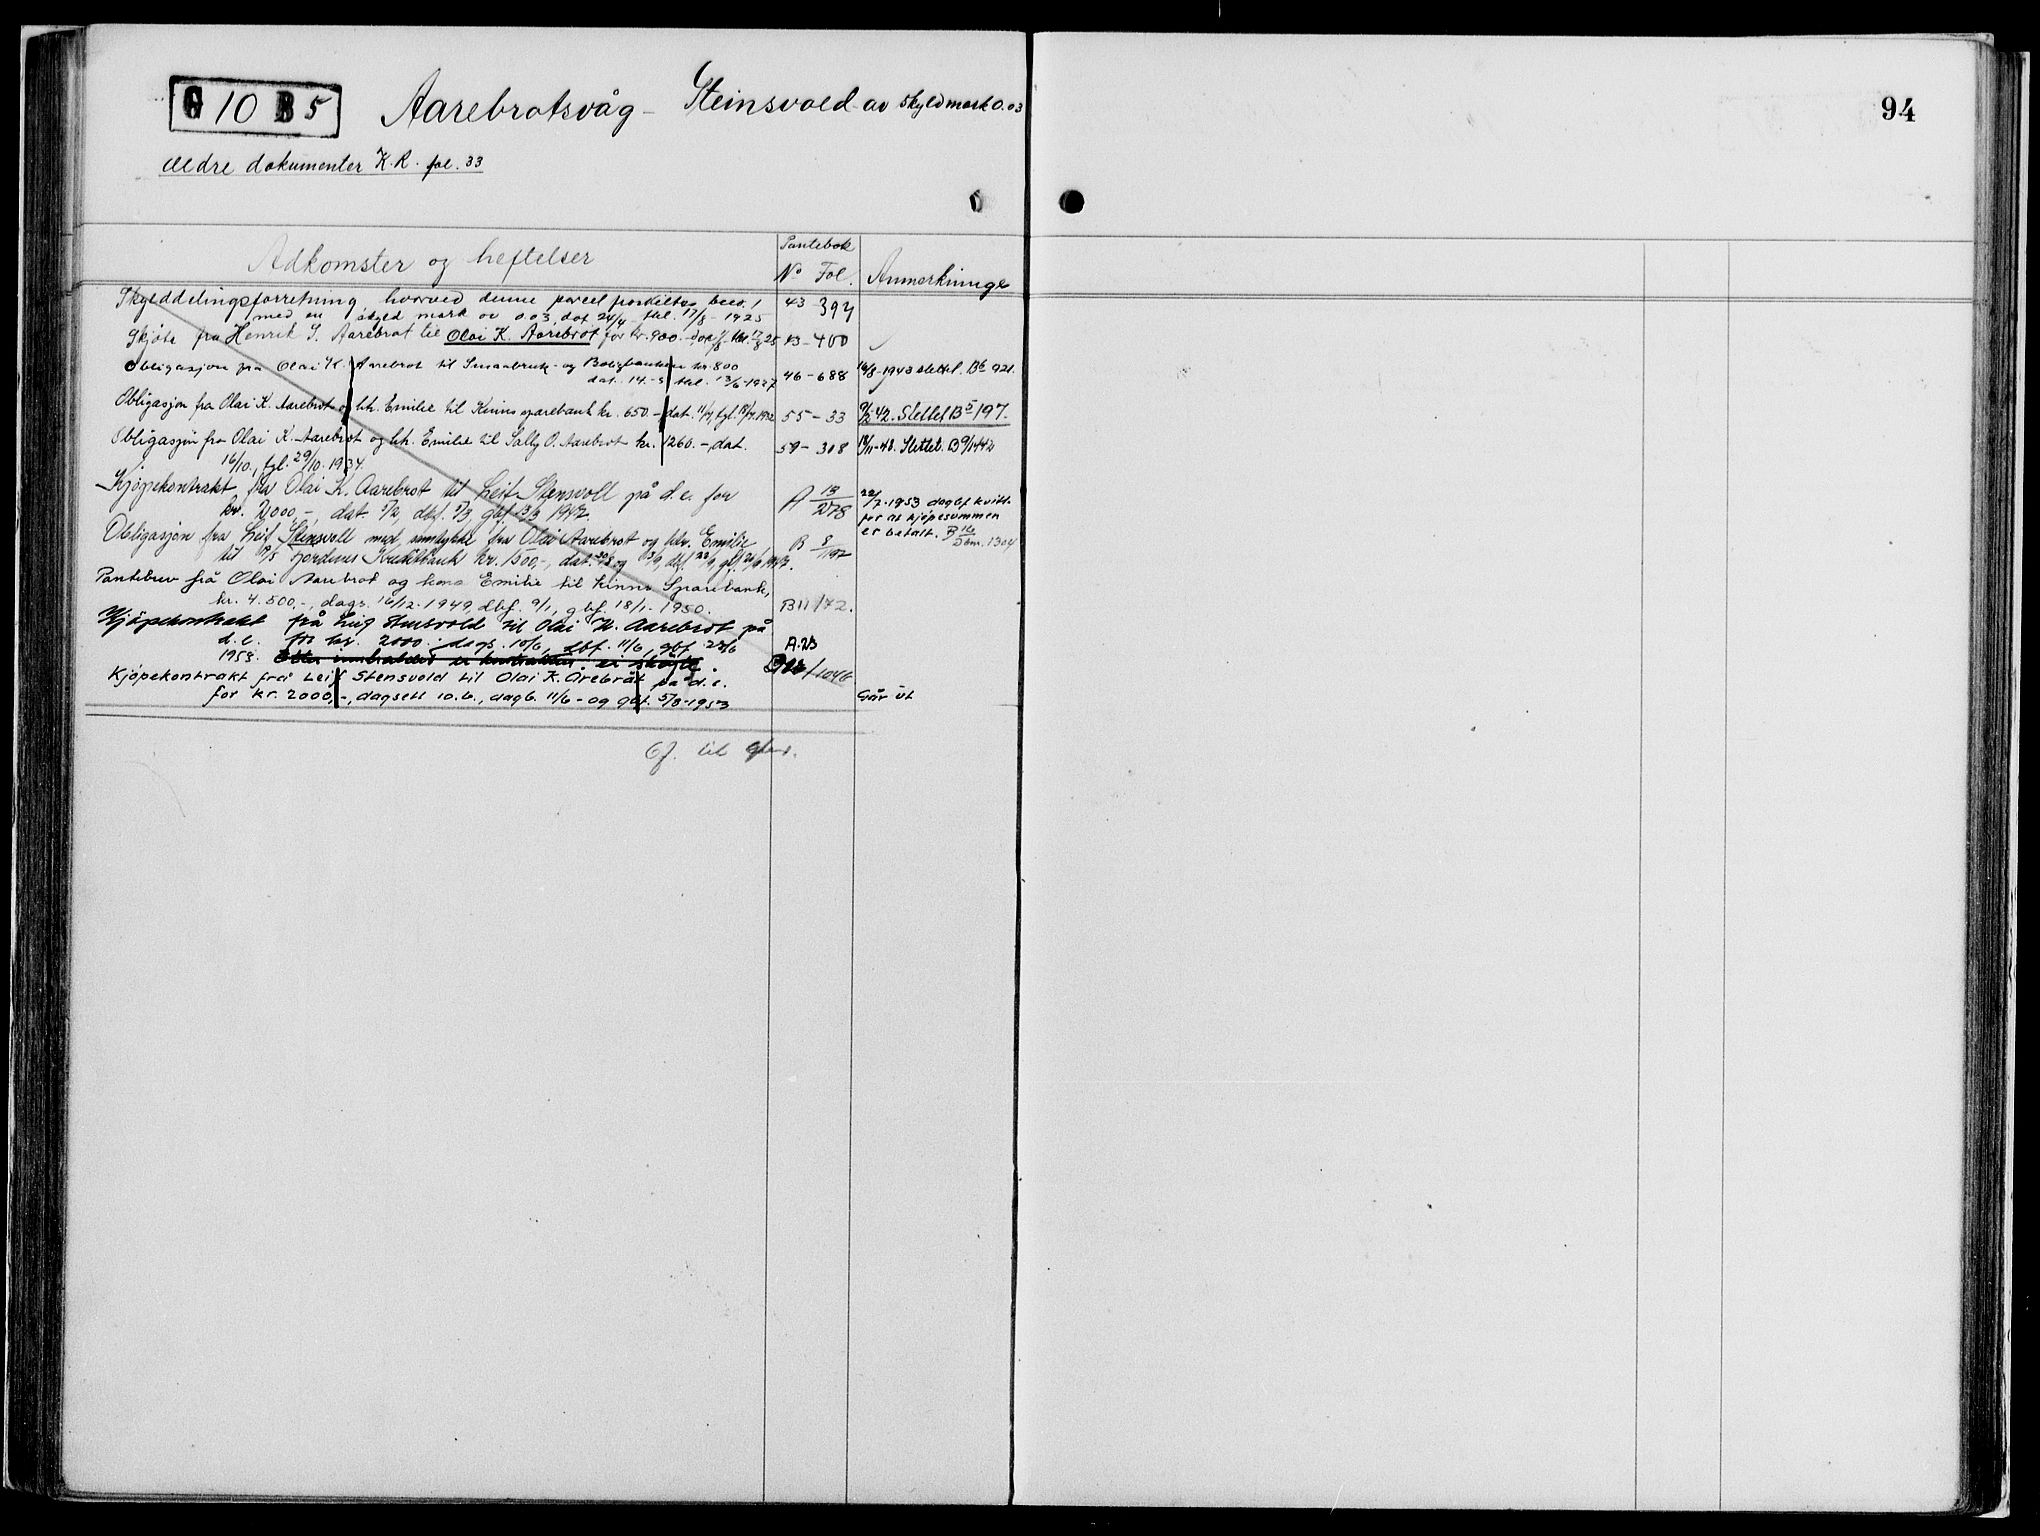 G 10 B 5 Aarebrotsvåg - Steinsvold av skyldmark 0.03
94
Ældre dokumenter K.R. fol. 33
Adkomster og heftelser
Pantebok
No Fol. Anmerkninge
Skylddelingsforretning, hvorved denne parcel fraskiltes bno. 1 43 - 394
med en skyld mark av 0.03, dat 24/4 tkl. 17/8 - 1925
Skjøte fra Henrik S. Aarebrot til Olai K. Aarebrot for kr. 900.- 43 - 400
Obligasjon fra Olai K. Aarebrot til Smaabruk- og Boligbanken kr. 800 46 - 688 16/8-1943 slettet. Bb 921.
dat. 14.-5 tkl. 13/6-1927
Obligasjon fra Olai K. Aarebrot og hh. Emilie til Kinns sparebank kr. 650.- dat. 11/4, tgl. 18/4 1932 55 - 33 9/2-42. Slettet B5/197.
Obligasjon fra Olai K. Aarebrot og hh. Emilie til Sally O. Aarebrot kr. 1260.-, dat. 59 - 308 18/11-48. Slettet.
16/10., tgl. 29/10. 1934.
Kjöpekontrakt fra Olai K. Aarebrot til Leif Stensvoll på d.e. for A 13/278 22/7-1953 dagbf kvitt.
kr. 2000,-, dat. 1/2, dbf. 1/3, gbf. 13/3 1947. for at kjøpesummen
er betalt. B 16/Dbnr. 1304
Obligasjon fra Leif Stensvoll med samtykke fra Olai Aarebrot og hh. Emilie B 8/1192
til A/S Fjordenes Kreditbank kr. 1500,-, dat. 30/8 og 13/9, dbf. 22/9, gbf.
Pantebrev frå Olai Aarebrot og kona Emilie til Kinn Sparebank,
kr. 4.500,-, dags. 16/12-1949, dbf. 9/1, gbf. 18/1-1950. B11/72.
Kjöpekontrakt frå Leif Stensvold til Olai K. Aarebrot på
d.e. for kr. 2000.- dags. 10/6, dbf. 11/6, gbf. 23/6 A.23
1953.
Kjöpekontrakt frå Leif Stensvold til Olai K. Årebrot på d.e. /1046
for kr. 2000,-, dagsett 10.6., dagb. 11/6 - og gbf. 5/8-1953 Går ut